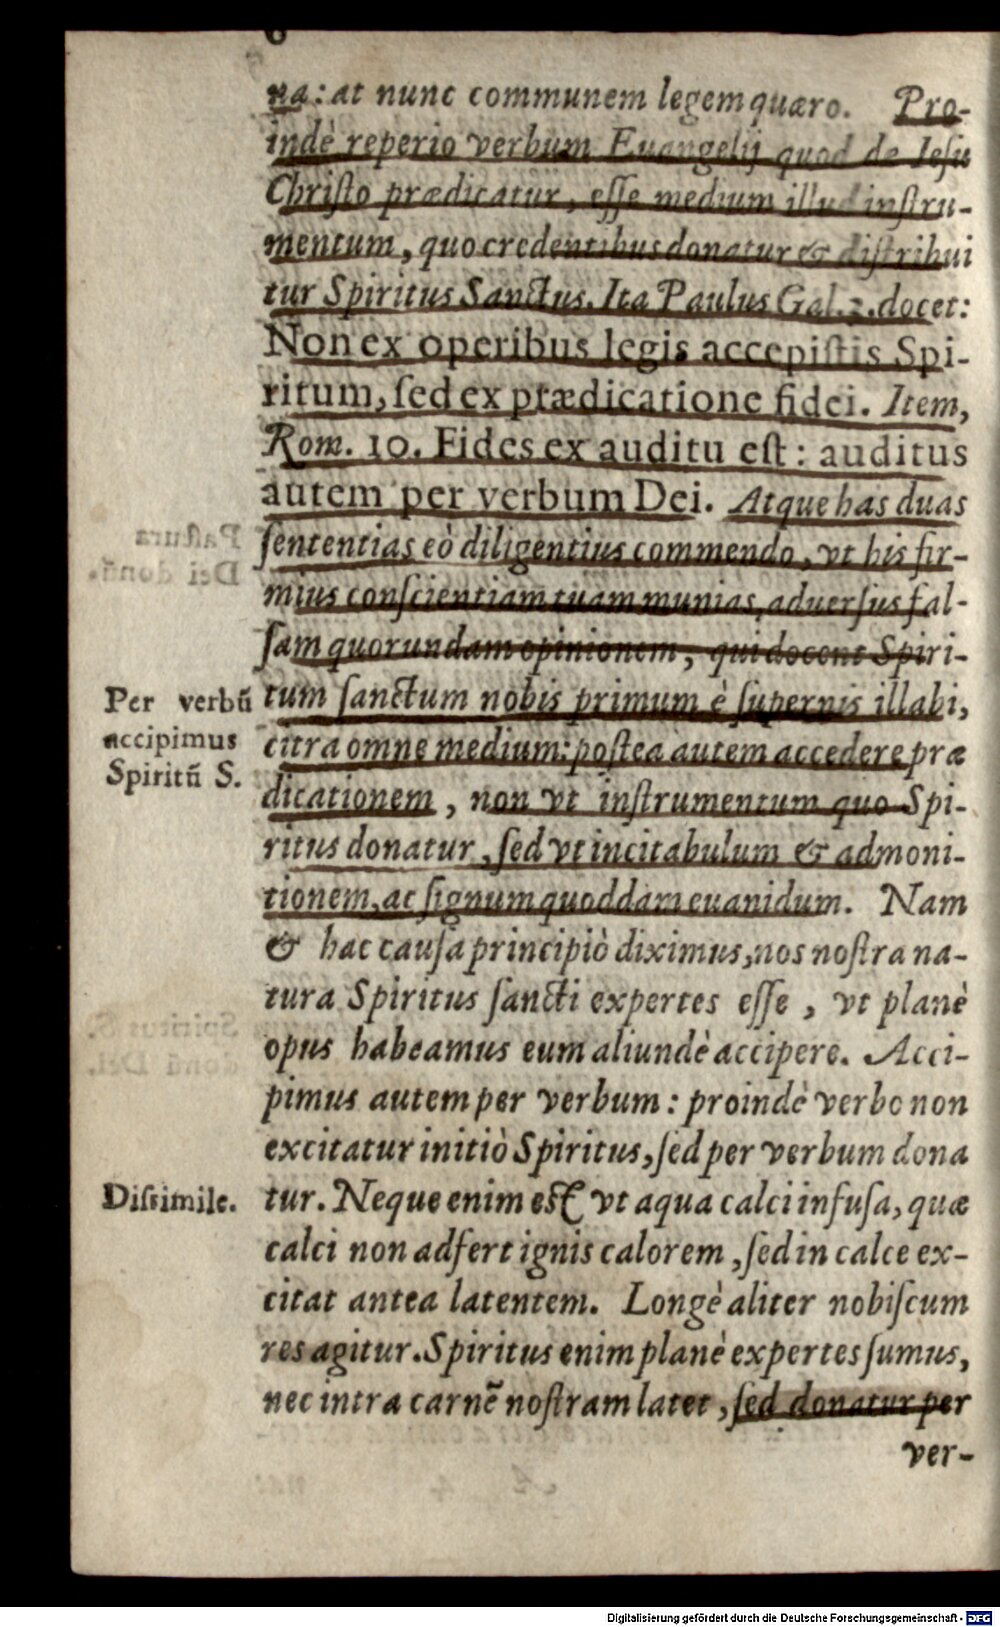 na: at nunc communem legem quæro. Pro-
indè reperio verbum Euangelij quod de Iesu
Christo prædicatur, esse medium illud instru-
mentum, quo credentibus donatur & distribui
tur Spiritus Sanctus. Ita Paulus Gal. 3. docet:
Non ex operibus legis accepistis Spi-
ritum, sed ex prædicatione fidei. Item,
Rom. 10. Fides ex auditu est: auditus
autem per verbum Dei. Atque has duas
sententias eò diligentius commendo, vt his fir-
mius conscientiam tuam munias, aduersus fal-
sam quorundam opinionem, qui docent Spiri-
Per verbũ
accipimus
Spiritũ S.
tum sanctum nobis primum è supernis illabi,
citra omne medium: postea autem accedere præ
dicationem, non vt instrumentum quo Spi-
ritus donatur, sed vt incitabulum & admoni-
tionem, ac signum quoddam euanidum. Nam
& hac causa principiò diximus, nos nostra na-
tura Spiritus sancti expertes esse, vt planè
opus habeamus eum aliundè accipere. Acci-
pimus autem per verbum: proindè verbo non
excitatur initiò Spiritus, sed per verbum dona
Dissimile.
tur. Neque enim est vt aqua calci infusa, quæ
calci non adfert ignis calorem, sed in calce ex-
citat antea latentem. Longè aliter nobiscum
res agitur. Spiritus enim planè expertes sumus,
nec intra carnẽ nostram latet, sed donatur per
ver-
Digitalisierung gefördert durch die Deutsche Forschungsgemeinschaft - DFG